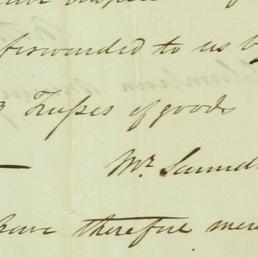 forwarded to us by
Trusses of goods
Mr. Saund
have therefore mer